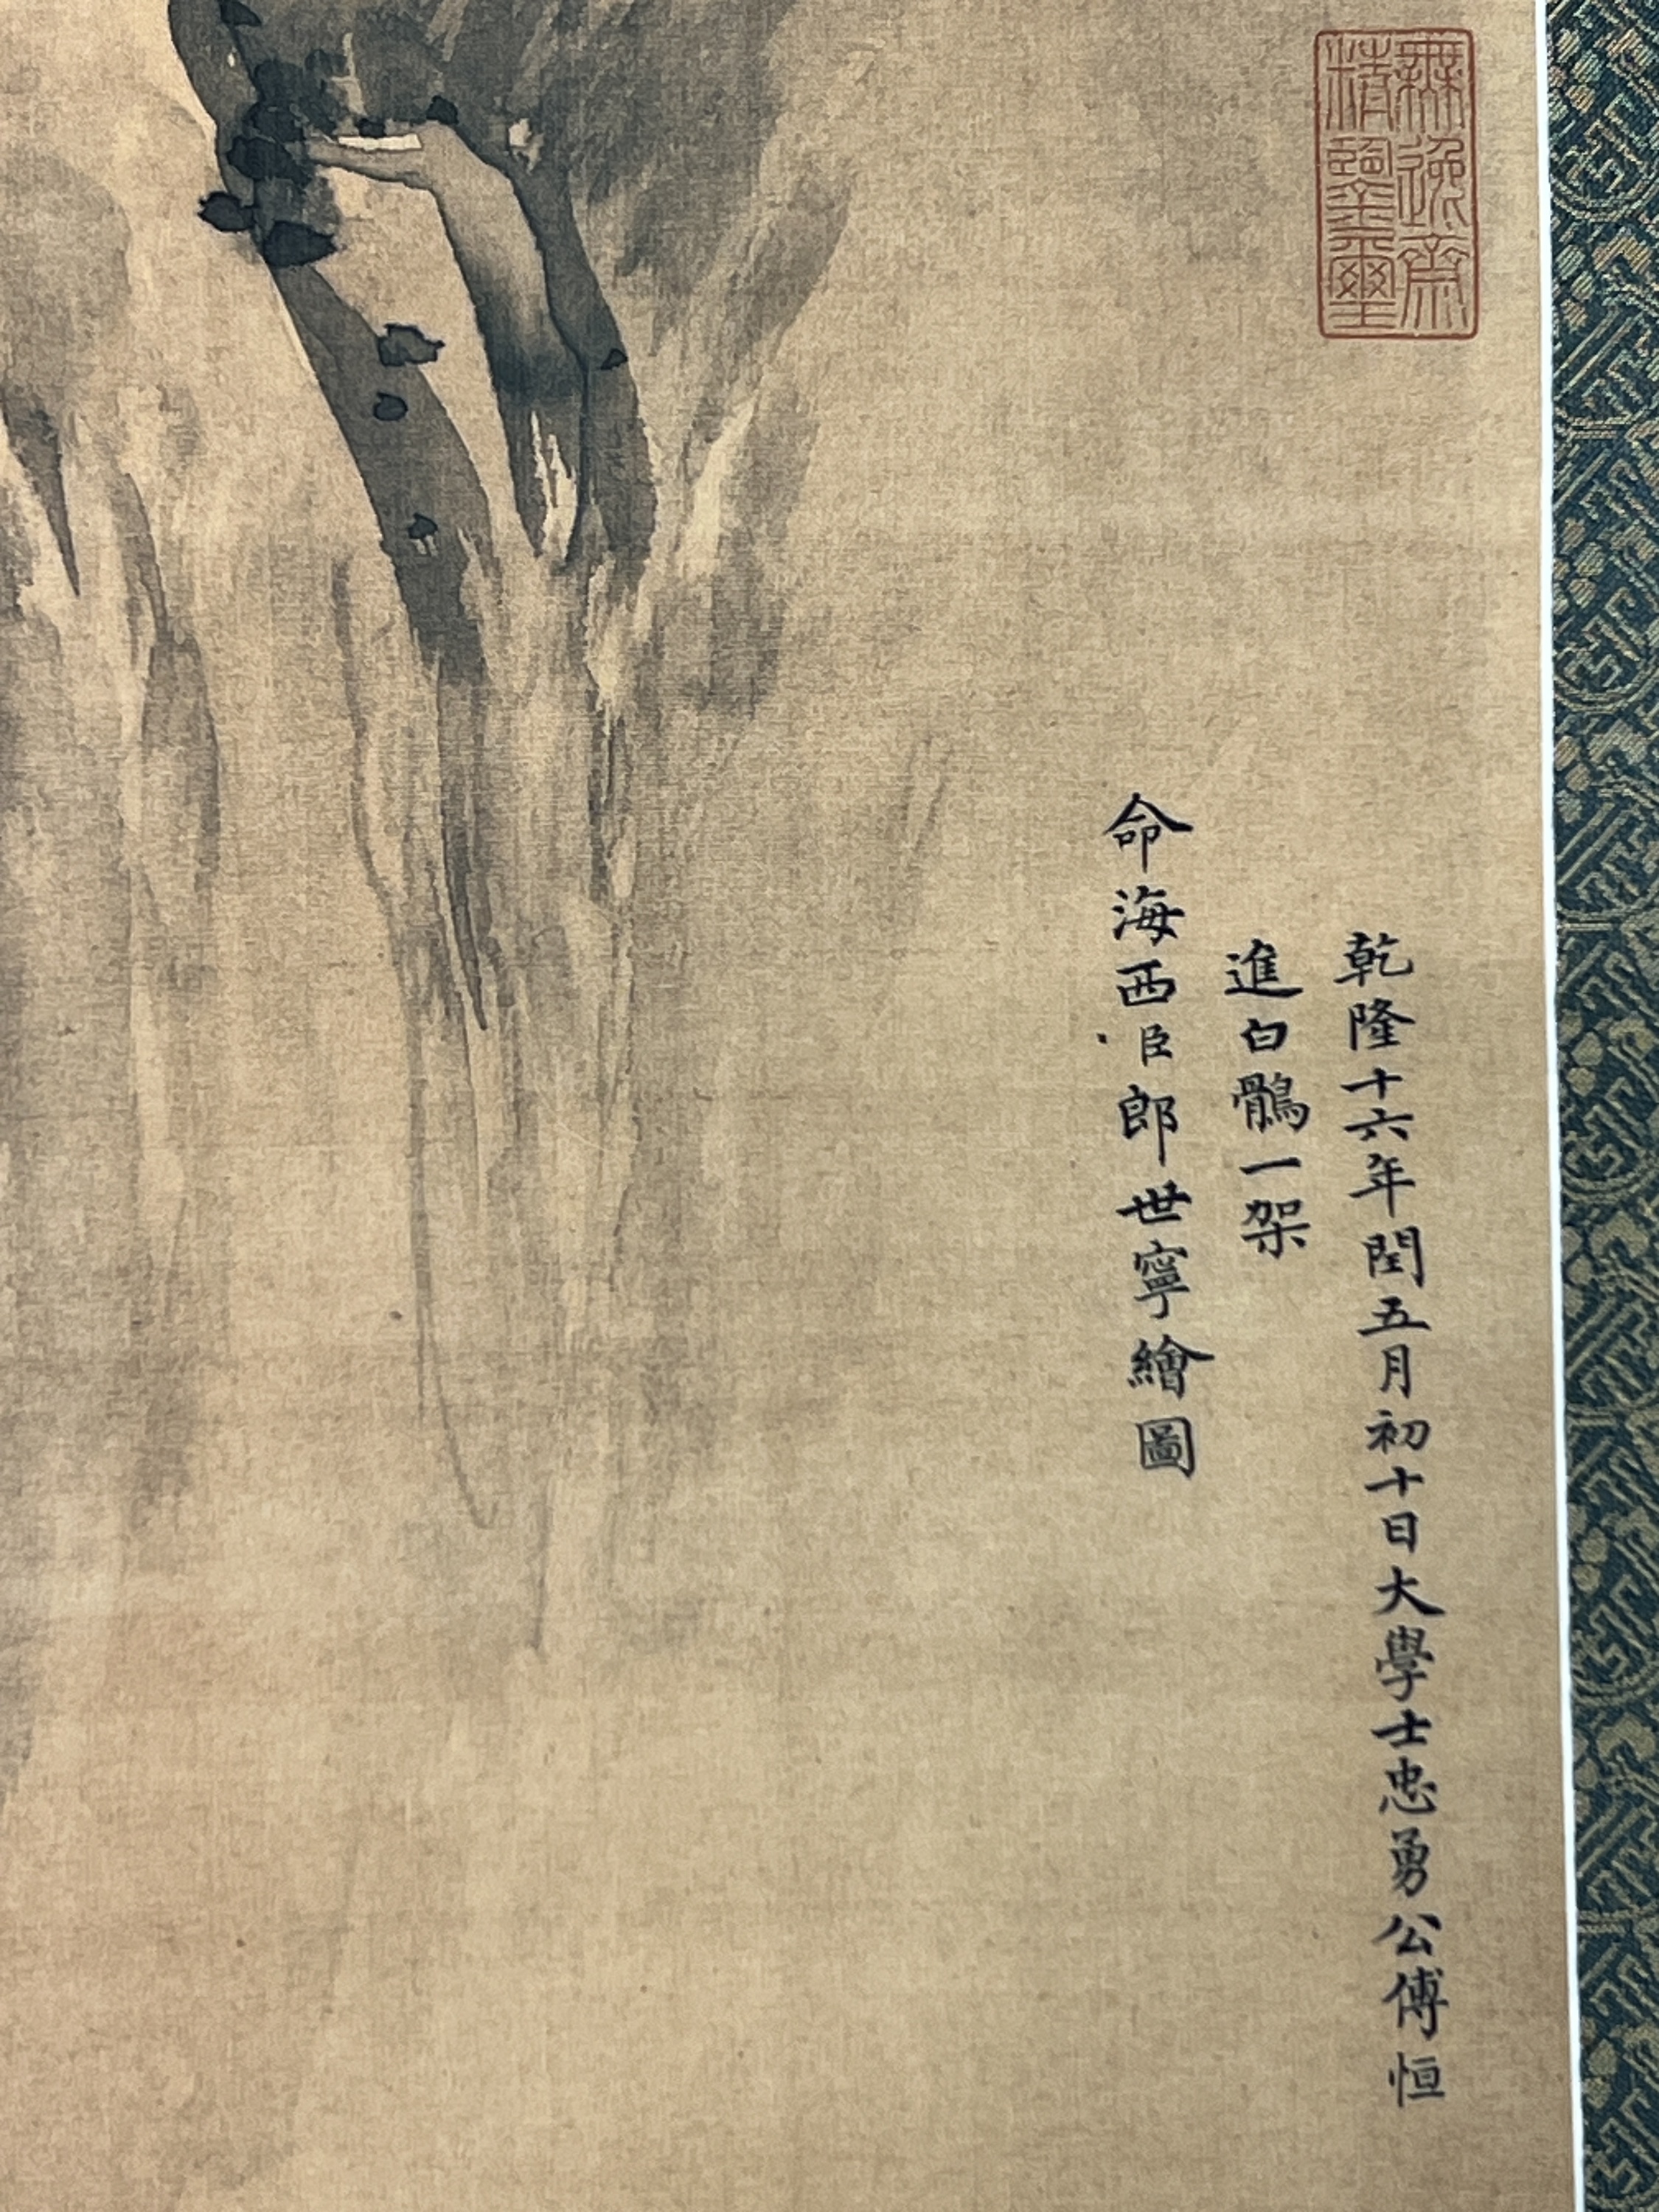 無逸齋
精鑒璽
乾隆十六年閏五月初十日大學士忠勇公傅恒
進白鶻一架
命海西臣郎世寧繪圖